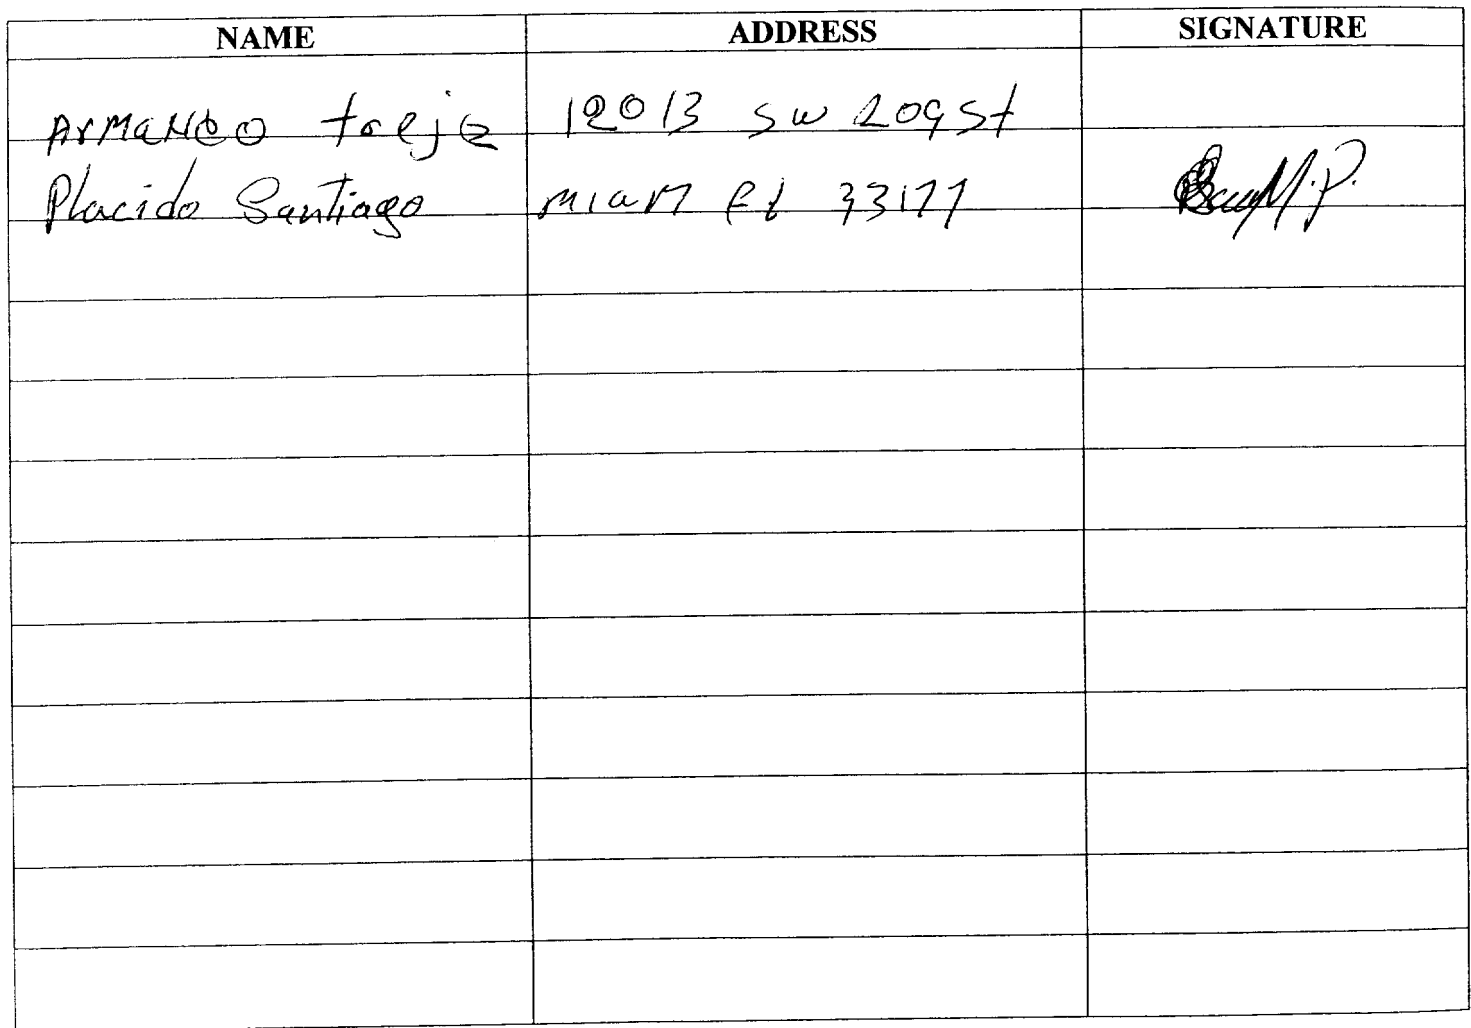 NAME ADDRESS SIGNATURE
ArMaNDO trejo 12013 SW 209 St
Placido Santiago MIaM Fl 33177